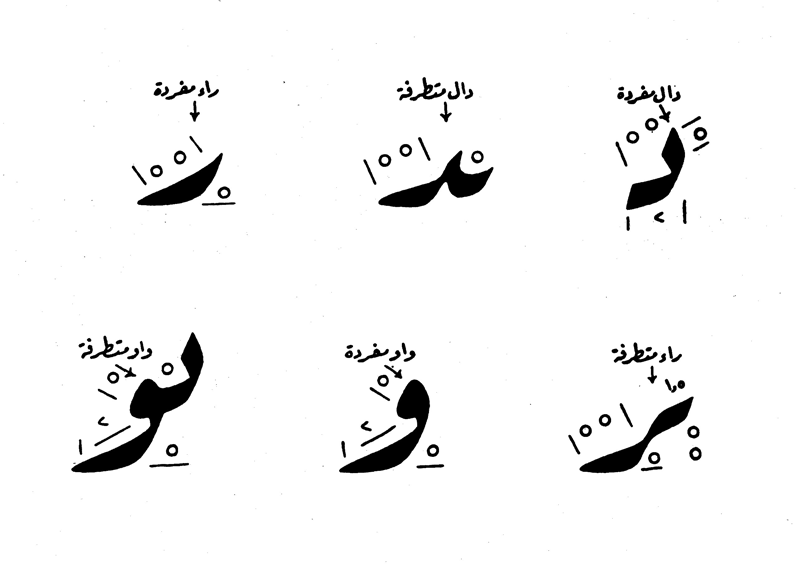 دال مفردة
د
دال متطرفة
ند
راء مفردة
ر
راء متطرفة
بر
واو مفردة
و
واو متطرفة
نو